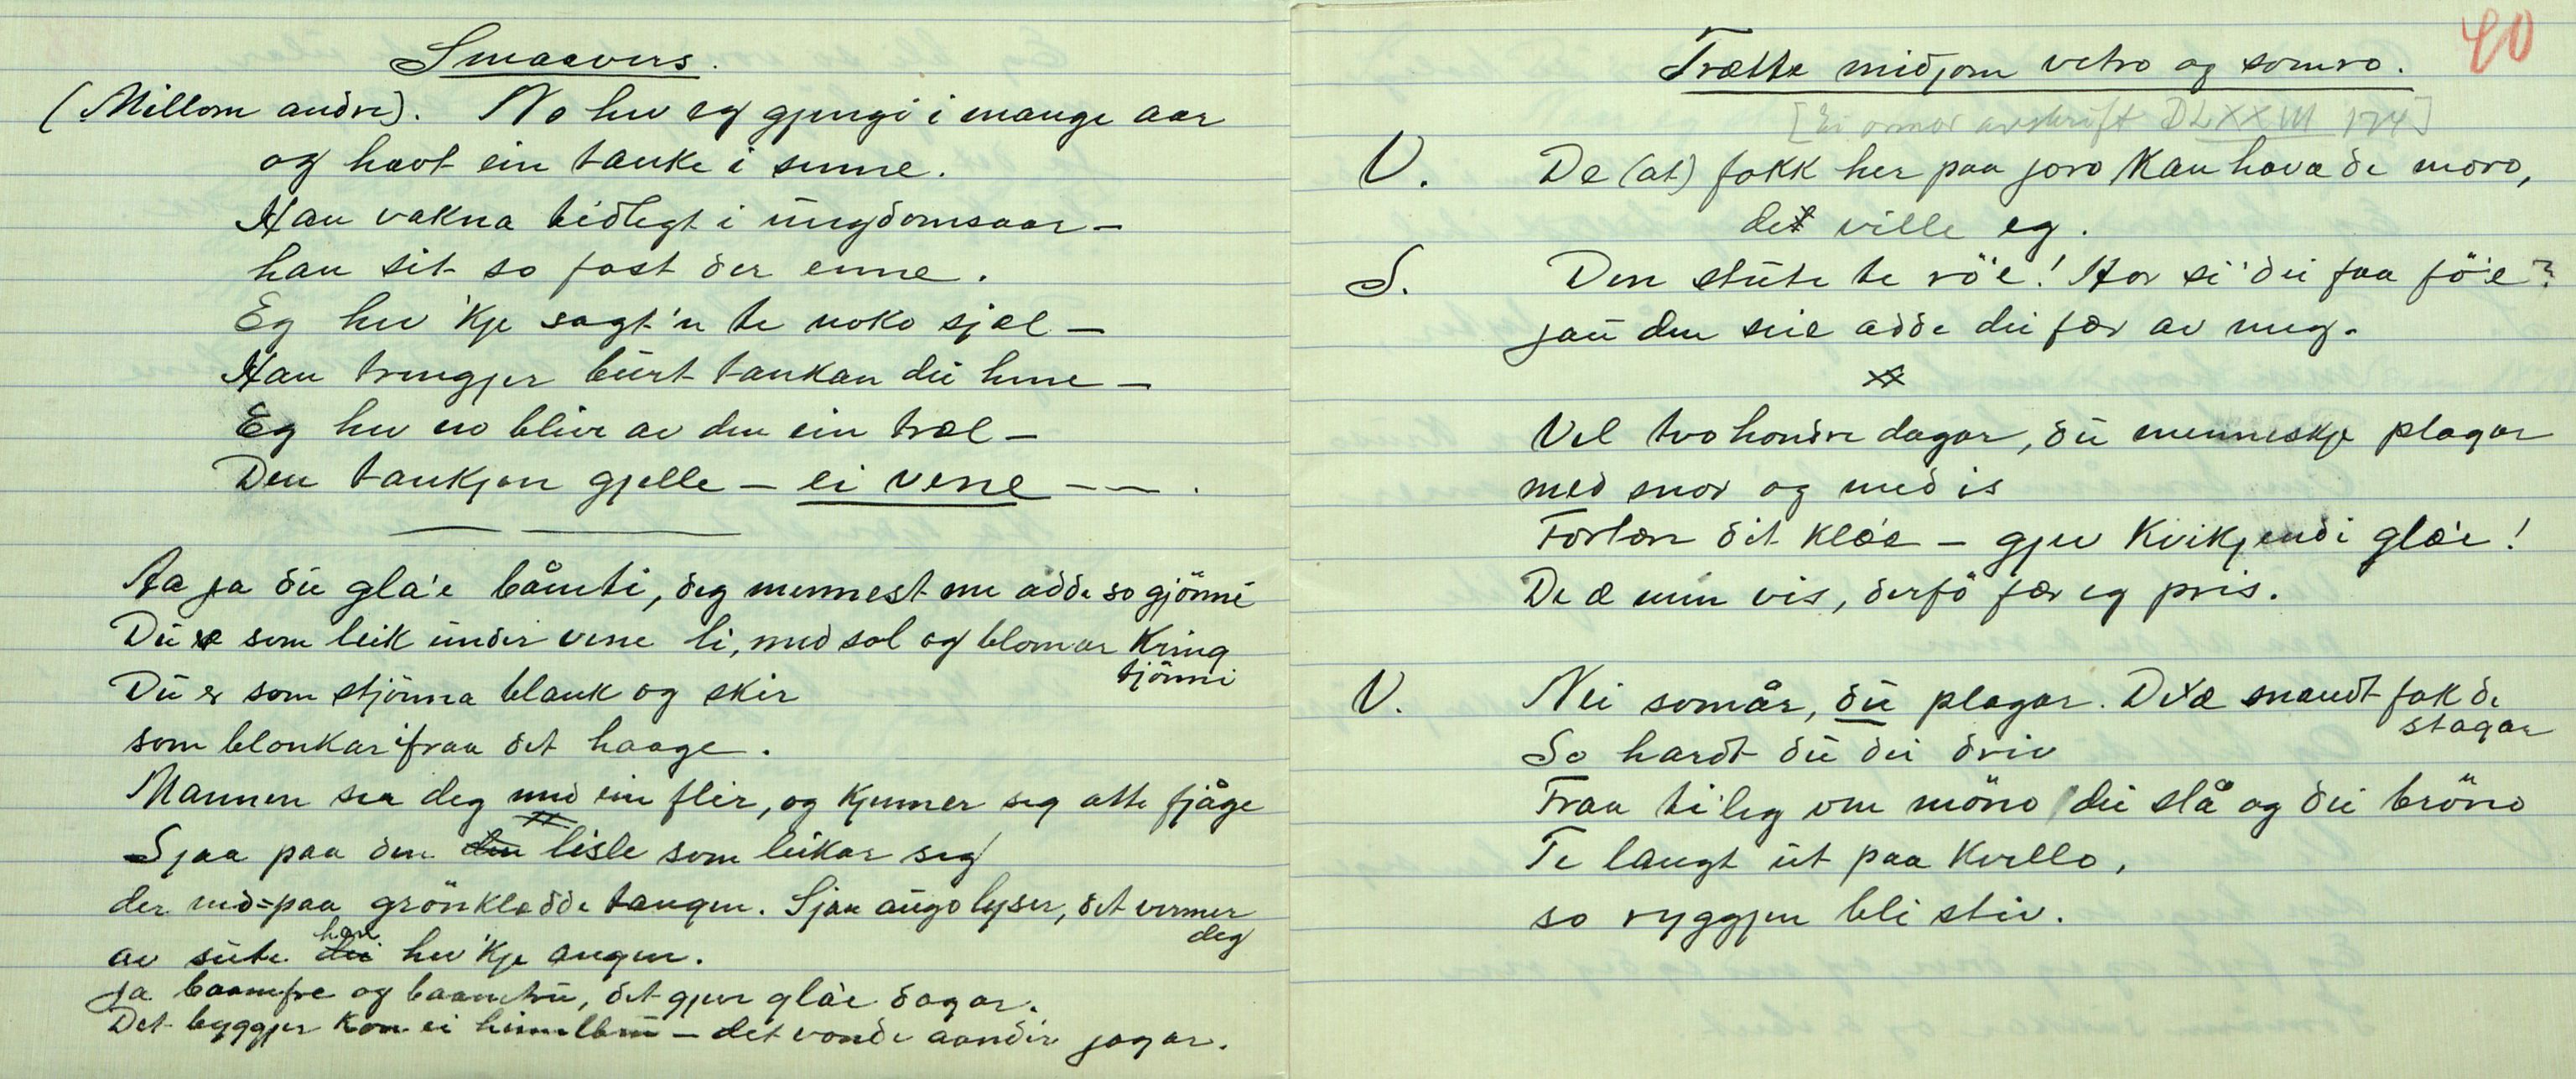 Smaavers.
(Millom andre). No hev eg gjengi i mange aar
og havt ein tanke i sinne.
Han vakna tiðlegt i ungdomsaar –
han sit so fast ðer enne.
Eg hev 'kje sagt'n te noko sjæl –
Han trengjer burt tankan dei hine –
Eg hev no blive av den ein træl –
Den tankjen gjelle – ei vene – – .
Aa ja ðu gla'e båmti, ðeg minnest me aððe so gjönni
Du æ som leik undir vene li, med sol og blomar kring
tjönni
Du er som stjönna blank og skir
som blonkar ifraa ðet haage.
Mannen ser deg með ein flir, og kjenner seg atte fjåge
Sjaa paa ðen lisle som leikar seg
der neð=paa grönkledde tangen. Sjaa augo lyser, ðet vermer
deg
av sute han hev 'kje angen.
Ja baamfre og baamtru, ðet gjev gla'e ðagar.
Det byggjer kon ei himelbru – det vonde aandir jagar.
40
Trætte miðjom vetro og somro.
[Ei onnor avskrift DLXXIII 174]
V. De (at) fokk her paa joro kan hava ðe moro,
det ville eg.
S. Den stute te rö'e! Hor si' ðei faa fö'e?
jau den sie aððe dei fær av meg.
Vel tvo hondre dagar, ðu menneskje plagar
með snor og með is
Fortær ðit klæe – gjev kvikjendi glæ'e!
De æ min vis, ðerfö fær eg pris.
V. Nei somår, ðu plagar. De æ snaudt fok ðe
stagar
So hardt ðu ðei ðriv
Fraa ti'leg om möno dei slå og ðei bröno
Te langt ut paa kvello,
so ryggjen bli stiv.